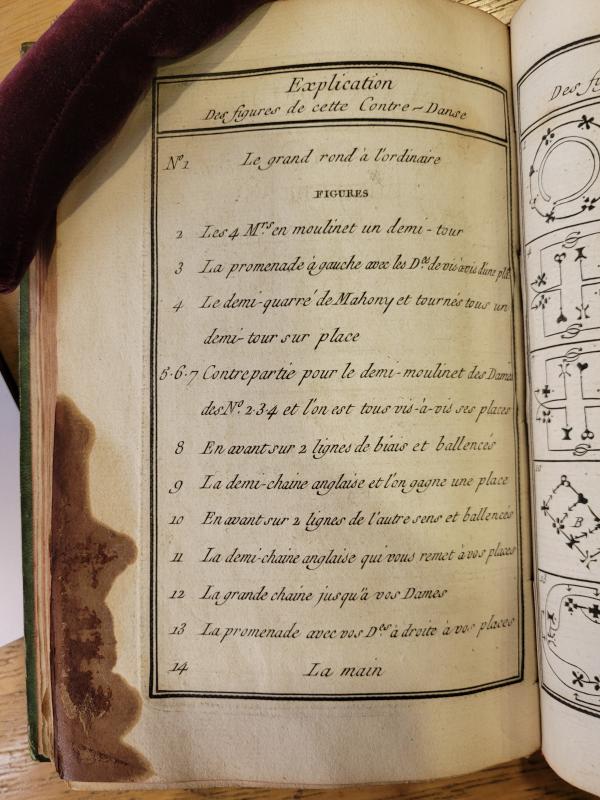 Explication
Des figures de cette Contre-Danse
N.º 1 Le grand rond à l'ordinaire
FIGURES
2 Les 4 M.rs en moulinet un demi-tour
3 La promenade à gauche avec les D.es de vis à vis d'une
4 Le demi-quarré de Mahony et tournés tous un
demi-tour sur place
5.6.7 Contrepartie pour le demi-moulinet des Dames
des N.º 2.3.4 et l'on est tous vis-à-vis ses places
8 En avant sur 2 lignes de biais et ballencés
9 La demi-chaine anglaise et l'on gagne une place
10 En avant sur 2 lignes de l'autre sens et ballencés
11 La demi-chaine anglaise qui vous remet à vos places
12 La grande chaine jusqu'à vos Dames
13 La promenade avec vos D.es à droite à vos places
14 La main
Des
B